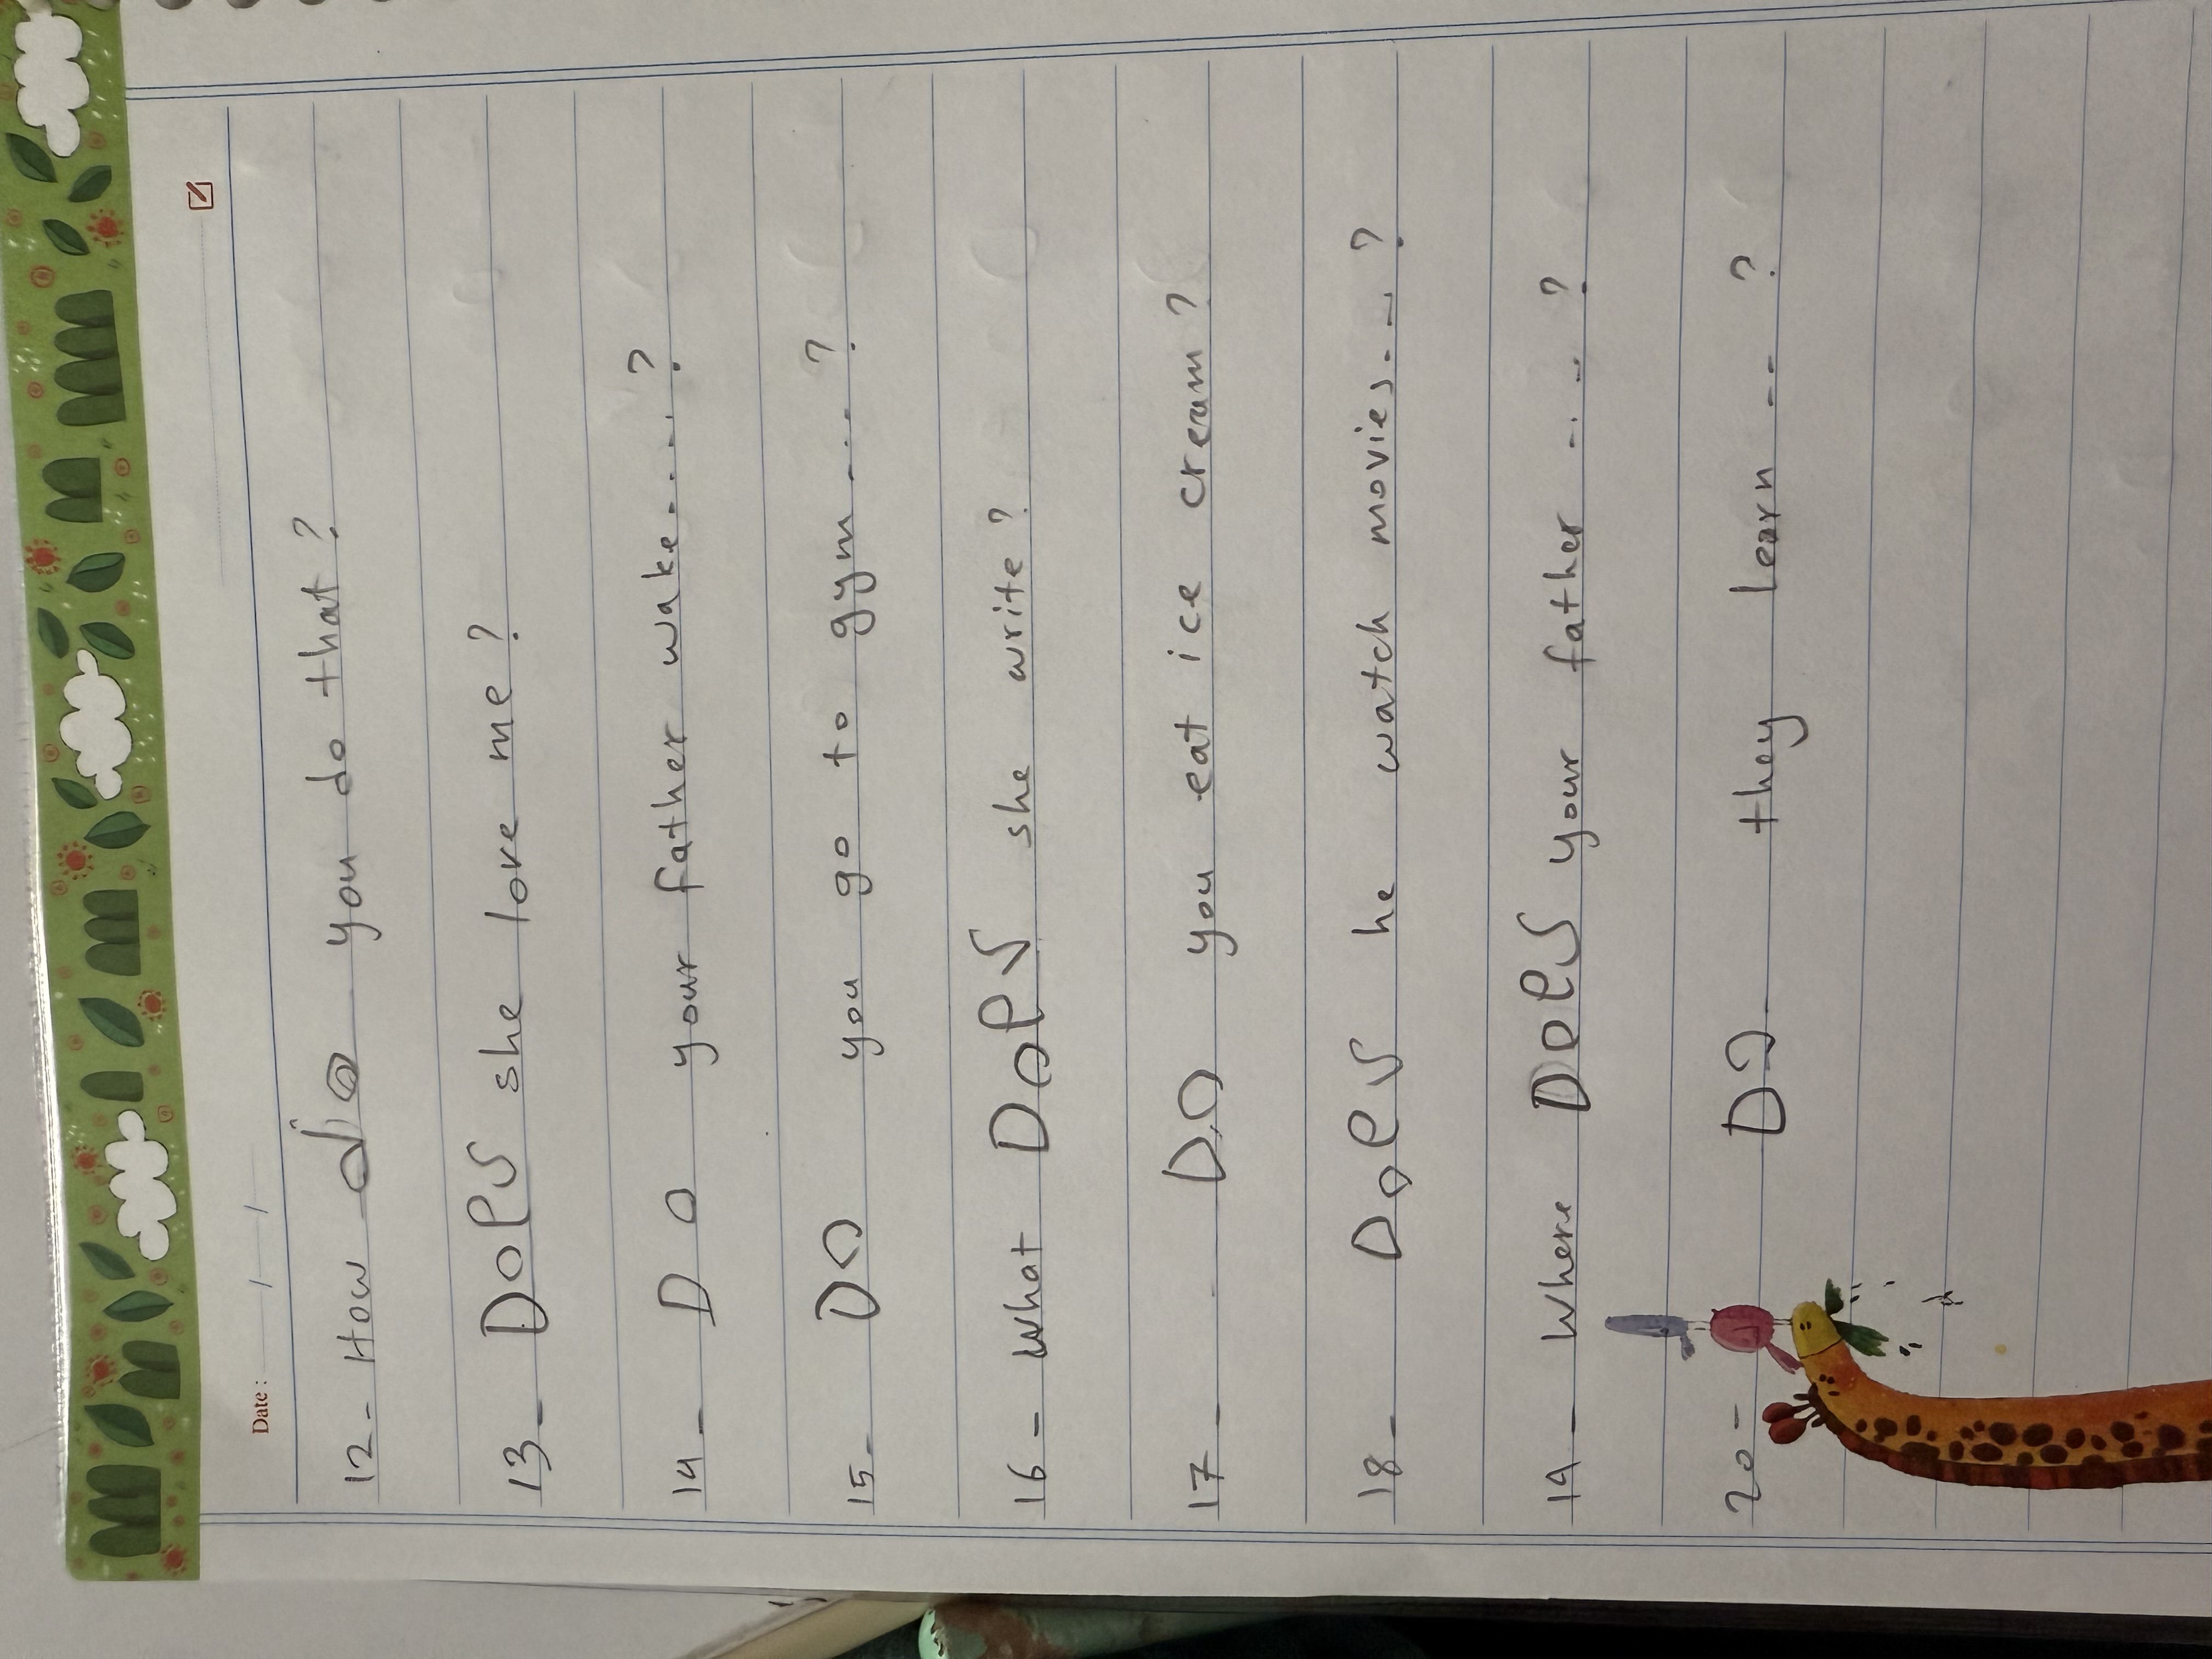 Date: / /
12- How do you do that?
13- Does she love me?
14- Do your father wake....?
15- Do you go to gym....?
16- what Does she write?
17- Do you eat ice cream?
18- Does he watch movies...?
19- where Does your father ....?
20- Do they learn ...?